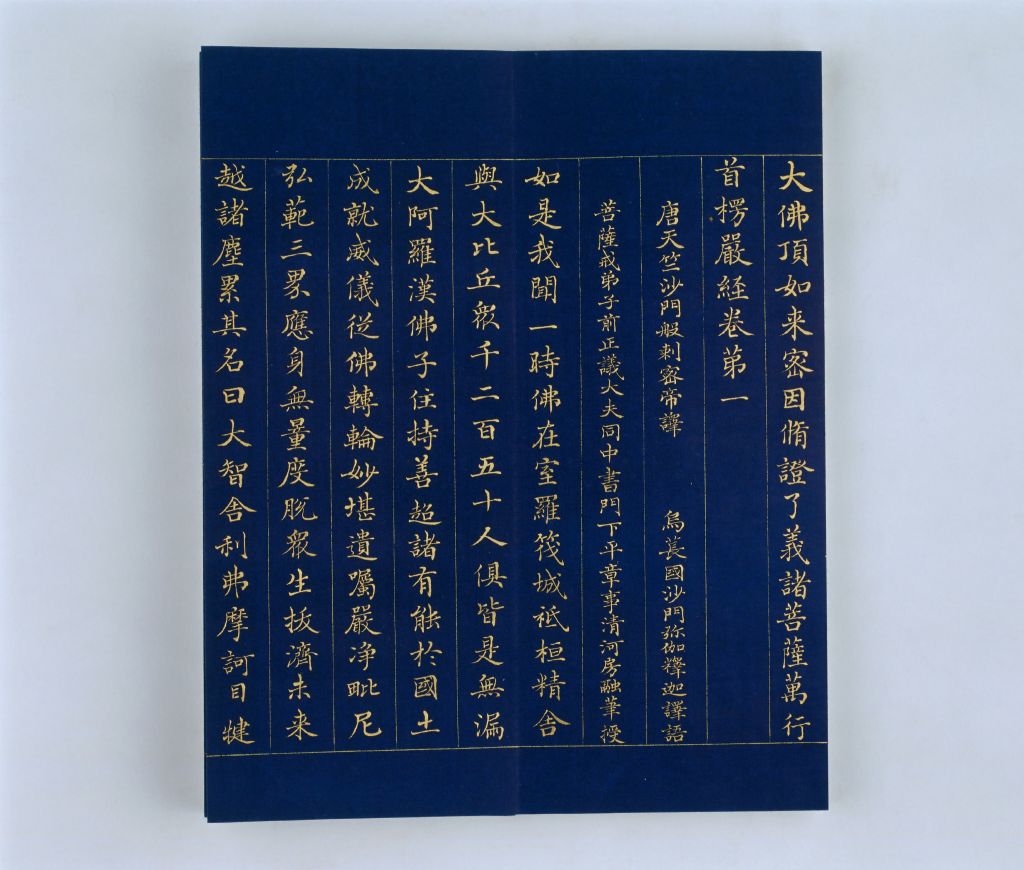 大佛頂如来密因脩證了義諸菩薩萬行
首楞嚴経卷第一
唐天竺沙門般刺密帝譯　烏萇國沙門弥伽釋迦譯語
菩薩戒弟子前正議大夫同中書門下平章事清河房融筆授
如是我聞一時佛在室羅筏城祇桓精舍
與大比丘衆千二百五十人俱皆是無漏
大阿羅漢佛子住持善超諸有能於國土
成就威儀從佛轉輪妙堪遺囑嚴净毗尼
弘範三界應身無量度脫衆生拔濟未来
越諸塵累其名曰大智舍利弗摩訶目犍